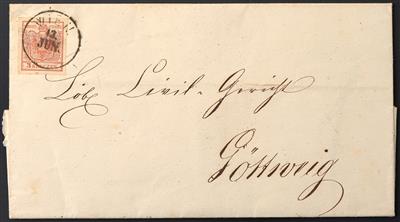 WIEN
13.
JUN.
Löb. Civil-Gericht
Göttweig